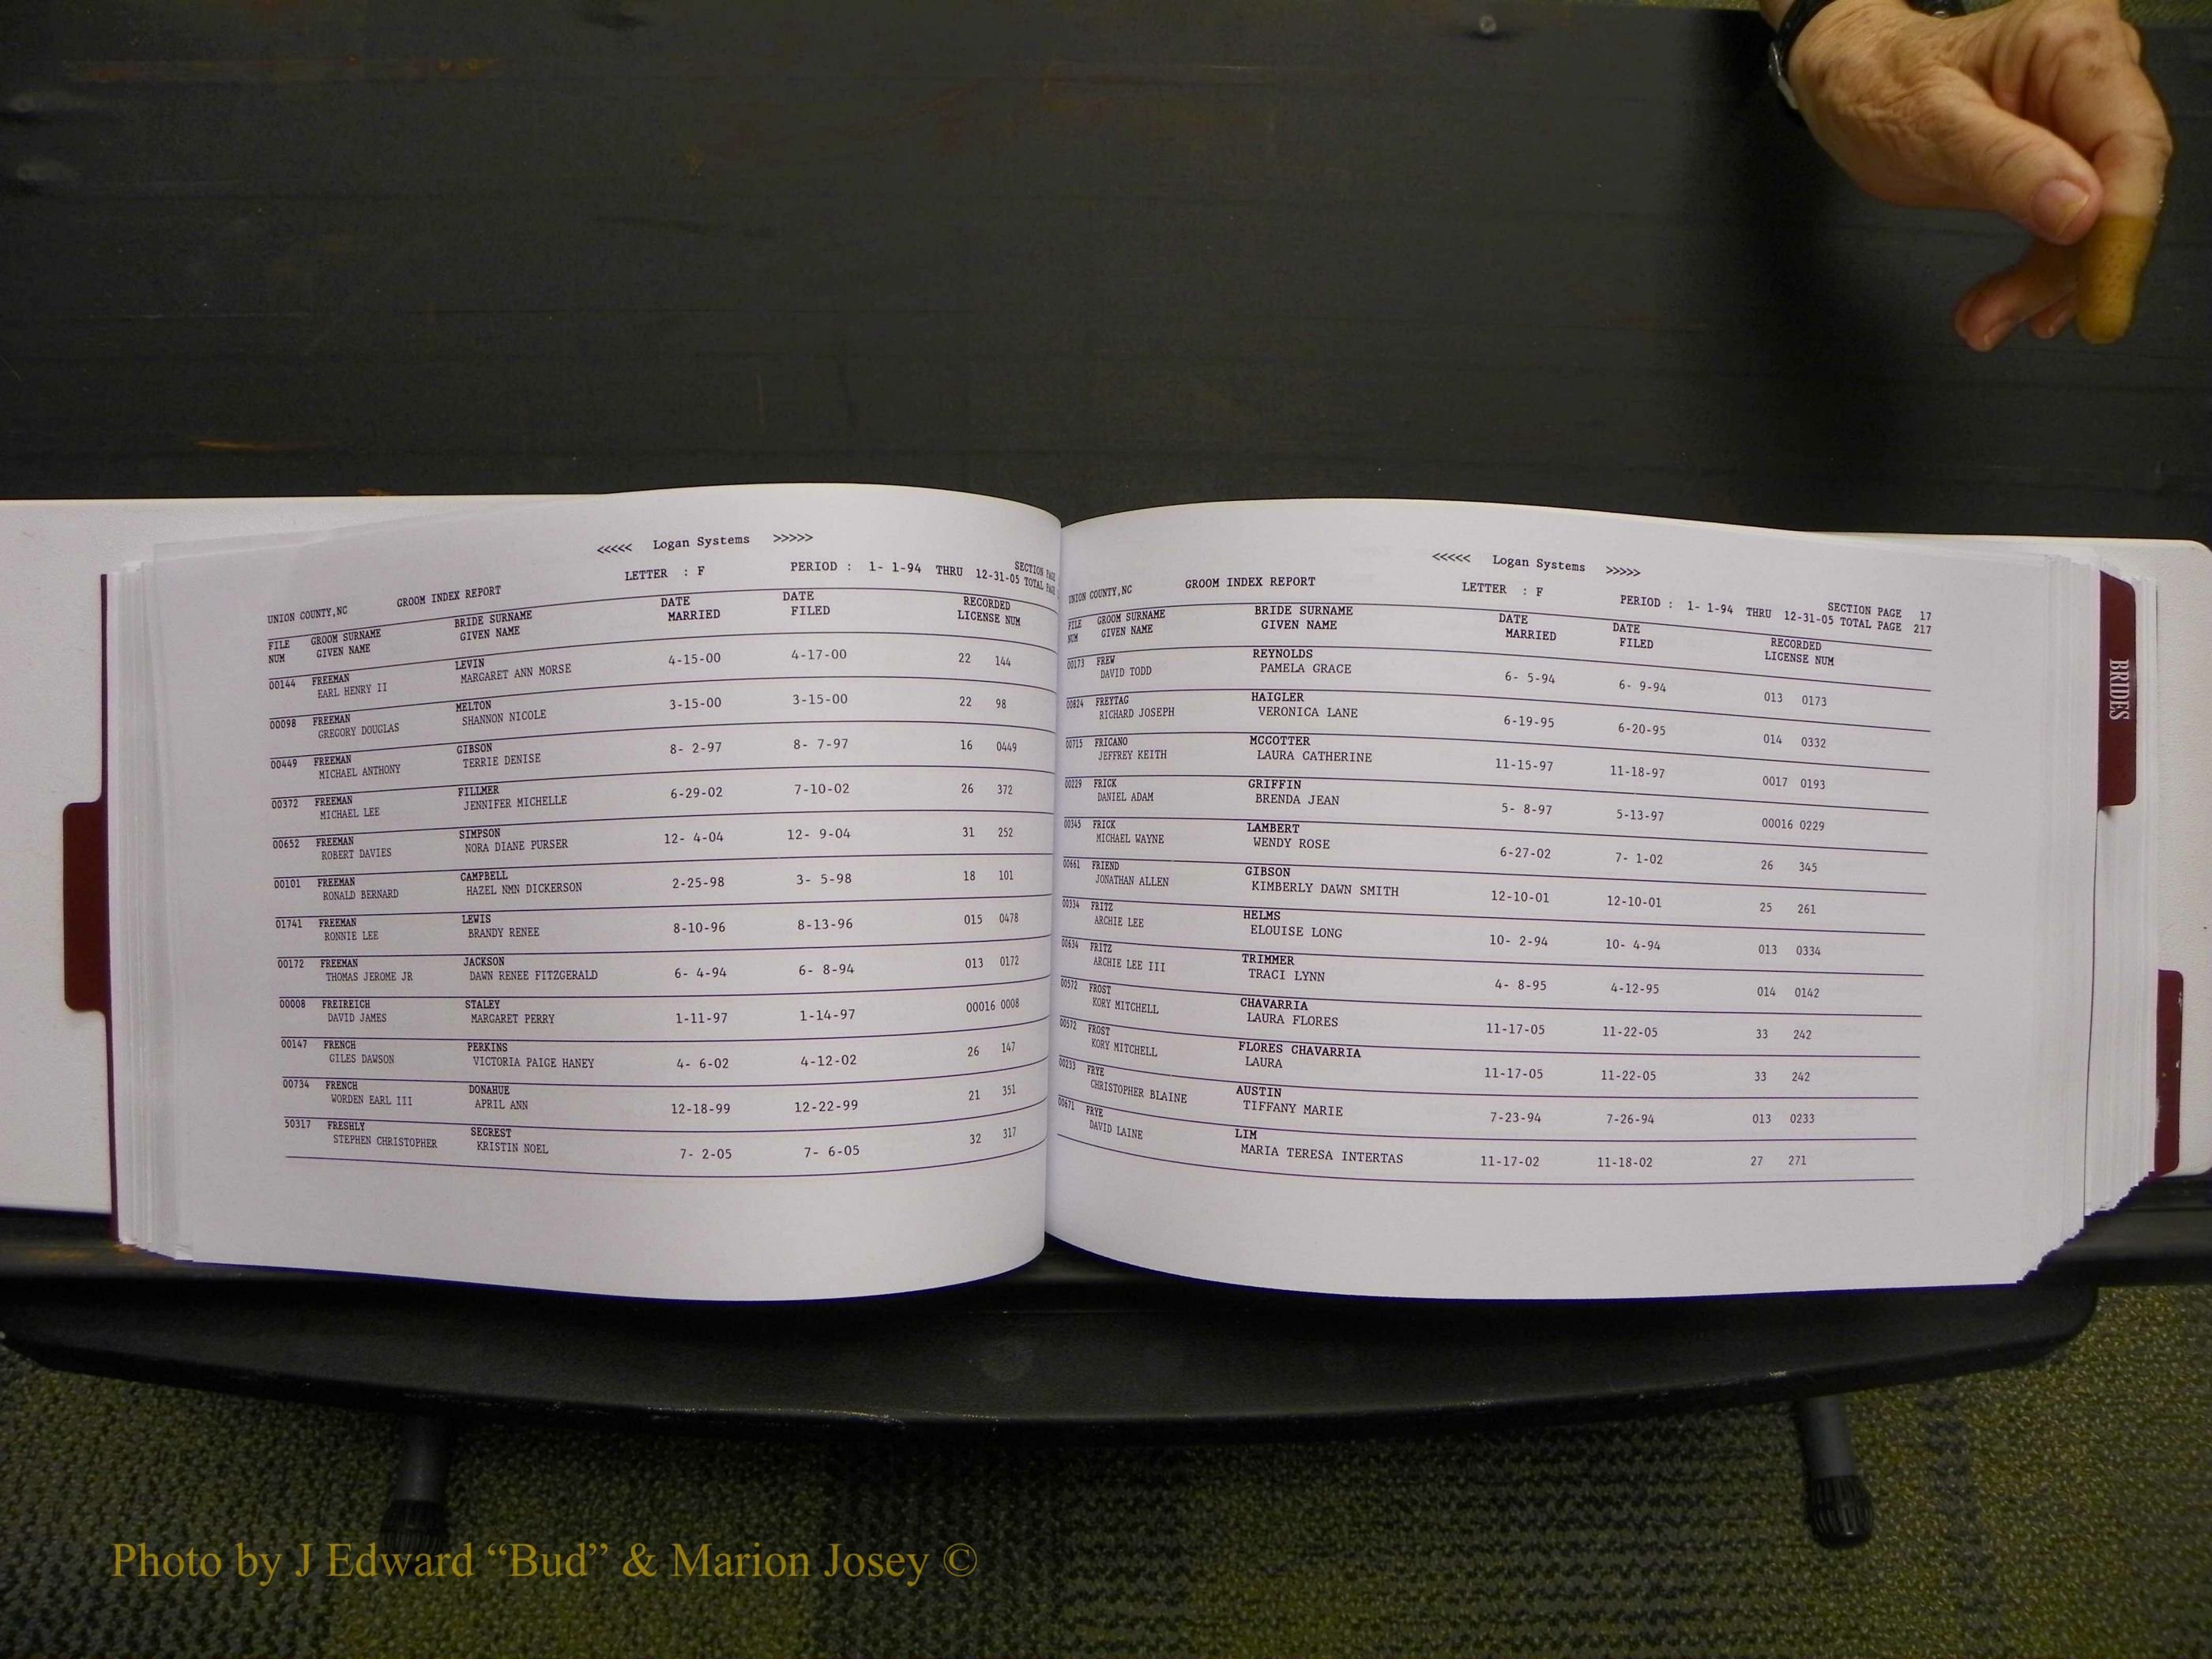 <<<<< Logan Systems >>>>>
UNION COUNTY,NC GROOM INDEX REPORT LETTER : F PERIOD : 1- 1-94 THRU 12-31-05 SECTION
TOTAL
FILE GROOM SURNAME BRIDE SURNAME DATE DATE RECORDED
NUM GIVEN NAME GIVEN NAME MARRIED FILED LICENSE NUM
00144 FREEMAN LEVIN 4-15-00 4-17-00 22 144
EARL HENRY II MARGARET ANN MORSE
00098 FREEMAN MELTON 3-15-00 3-15-00 22 98
GREGORY DOUGLAS SHANNON NICOLE
00449 FREEMAN GIBSON 8- 2-97 8- 7-97 16 0449
MICHAEL ANTHONY TERRIE DENISE
00372 FREEMAN FILLMER 6-29-02 7-10-02 26 372
MICHAEL LEE JENNIFER MICHELLE
00652 FREEMAN SIMPSON 12- 4-04 12- 9-04 31 252
ROBERT DAVIES NORA DIANE PURSER
00101 FREEMAN CAMPBELL 2-25-98 3- 5-98 18 101
RONALD BERNARD HAZEL NMN DICKERSON
01741 FREEMAN LEWIS 8-10-96 8-13-96 015 0478
RONNIE LEE BRANDY RENEE
00172 FREEMAN JACKSON 6- 4-94 6- 8-94 013 0172
THOMAS JEROME JR DAWN RENEE FITZGERALD
00008 FREIREICH STALEY 1-11-97 1-14-97 00016 0008
DAVID JAMES MARGARET PERRY
00147 FRENCH PERKINS 4- 6-02 4-12-02 26 147
GILES DAWSON VICTORIA PAIGE HANEY
00734 FRENCH DONAHUE 12-18-99 12-22-99 21 351
WORDEN EARL III APRIL ANN
50317 FRESHLY SECREST 7- 2-05 7- 6-05 32 317
STEPHEN CHRISTOPHER KRISTIN NOEL
<<<<< Logan Systems >>>>>
UNION COUNTY,NC GROOM INDEX REPORT LETTER : F PERIOD : 1- 1-94 THRU 12-31-05 SECTION PAGE 17
TOTAL PAGE 217
FILE GROOM SURNAME BRIDE SURNAME DATE DATE RECORDED
NUM GIVEN NAME GIVEN NAME MARRIED FILED LICENSE NUM
00173 FREW REYNOLDS 6- 5-94 6- 9-94 013 0173
DAVID TODD PAMELA GRACE
00824 FREYTAG HAIGLER 6-19-95 6-20-95 014 0332
RICHARD JOSEPH VERONICA LANE
00715 FRICANO MCCOTTER 11-15-97 11-18-97 0017 0193
JEFFREY KEITH LAURA CATHERINE
00229 FRICK GRIFFIN 5- 8-97 5-13-97 00016 0229
DANIEL ADAM BRENDA JEAN
00345 FRICK LAMBERT 6-27-02 7- 1-02 26 345
MICHAEL WAYNE WENDY ROSE
00661 FRIEND GIBSON 12-10-01 12-10-01 25 261
JONATHAN ALLEN KIMBERLY DAWN SMITH
00334 FRITZ HELMS 10- 2-94 10- 4-94 013 0334
ARCHIE LEE ELOUISE LONG
00634 FRITZ TRIMMER 4- 8-95 4-12-95 014 0142
ARCHIE LEE III TRACI LYNN
00572 FROST CHAVARRIA 11-17-05 11-22-05 33 242
KORY MITCHELL LAURA FLORES
00572 FROST FLORES CHAVARRIA 11-17-05 11-22-05 33 242
KORY MITCHELL LAURA
00233 FRYE AUSTIN 7-23-94 7-26-94 013 0233
CHRISTOPHER BLAINE TIFFANY MARIE
00671 FRYE LIM 11-17-02 11-18-02 27 271
DAVID LAINE MARIA TERESA INTERTAS
BRIDES
Photo by J Edward “Bud” & Marion Josey ©